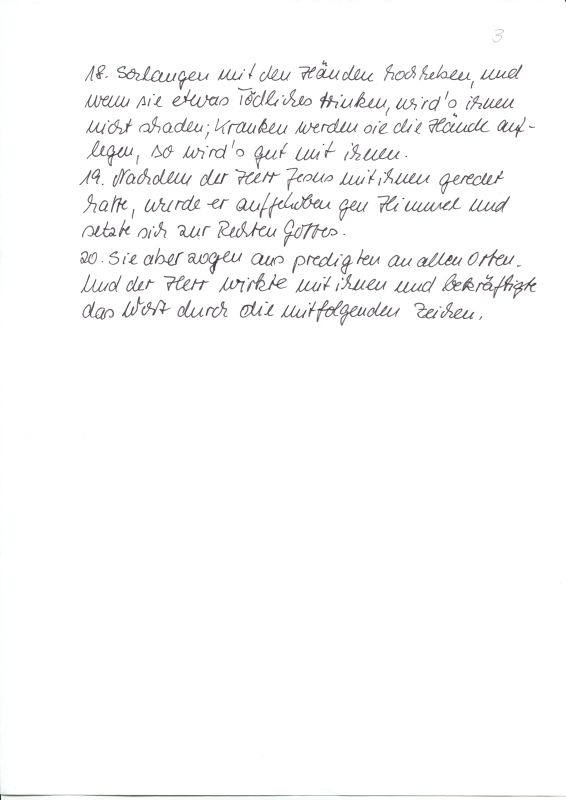 3
18. Schlangen mit den Händen hochheben, und
wenn sie etwas Tödliches trinken, wird's ihnen
nicht schaden; Kranken werden sie die Hände auf-
legen, so wird's gut mit ihnen.
19. Nachdem der Herr Jesus mit ihnen geredet
hatte, wurde er aufgehoben gen Himmel und
setzte sich zur Rechten Gottes.
20. Sie aber zogen aus predigten an allen Orten.
Und der Herr wirkte mit ihnen und bekräftigte
das Wort durch die mitfolgenden Zeichen.